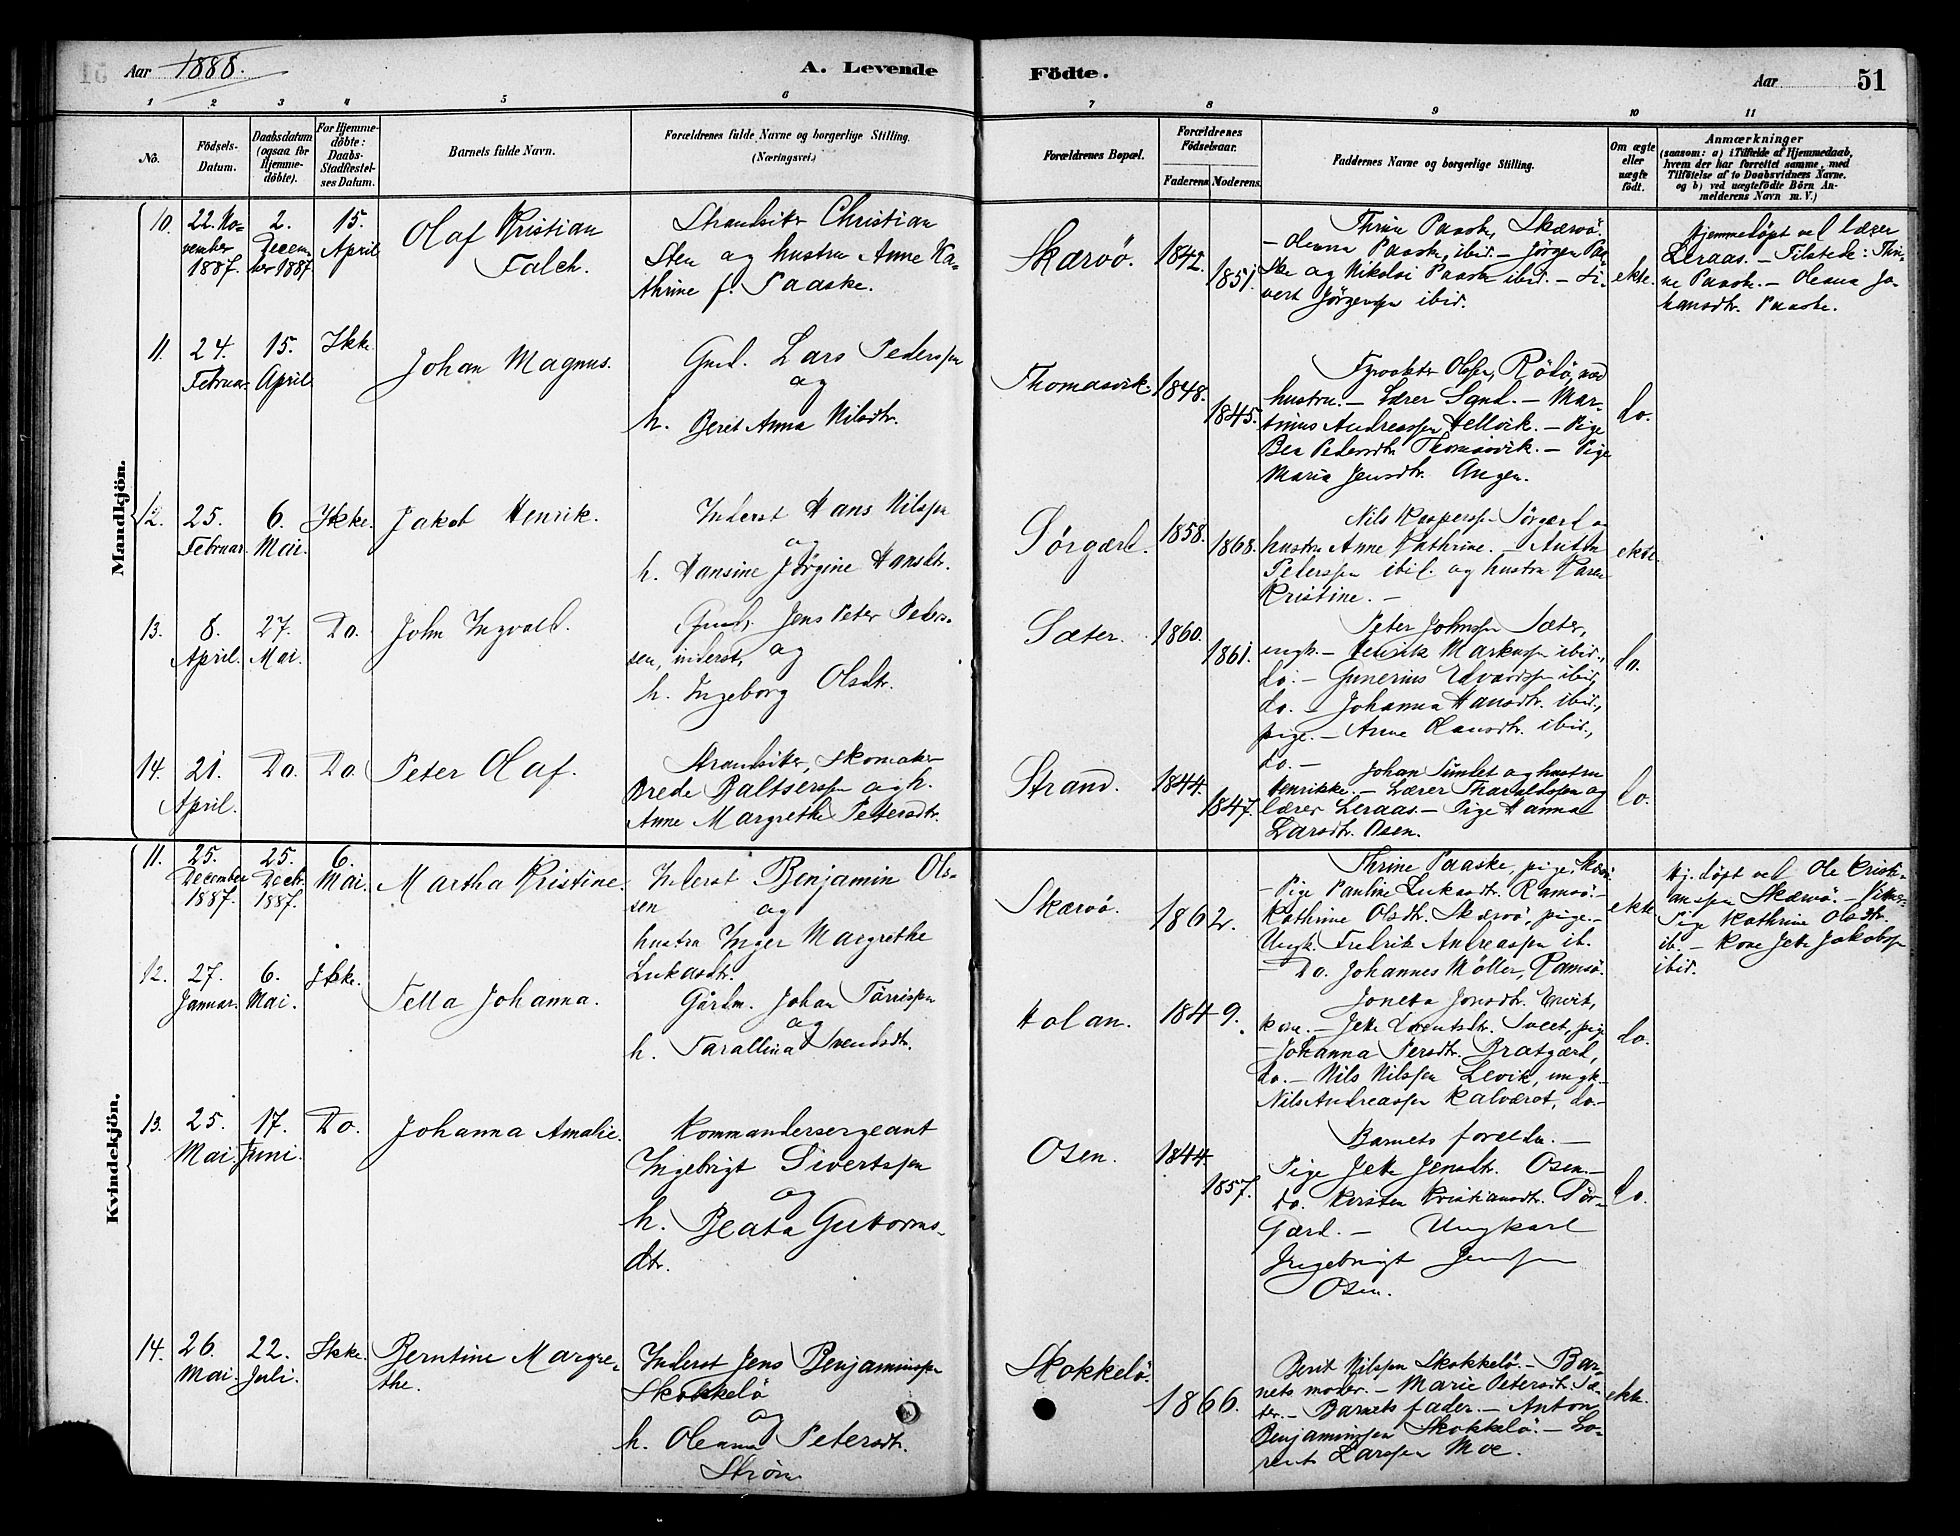 Aar 1888.
A. Levende
Födte.
Aar
51
1 2 3 4 5 6 7 8 9 10 11
No.
Födsels-
Datum.
Daabsdatum
(ogsaa for
Hjemme-
döbte).
For Hjemme-
döbte:
Daabs-
Stadfæstel-
ses Datum.
Barnets fulde Navn.
Forældrenes fulde Navne og borgerlige Stilling.
(Næringsvei.)
Forældrenes Bopæl.
Forældrenes
Födselsaar.
Faderens. Moderens.
Faddernes Navne og borgerlige Stilling.
Om ægte
eller
uægte
født.
Anmærkninger
(saasom: a) i Tilfælde af Hjemmedaab,
hvem der har forrettet samme, med
Tilføielse af to Daabsvidners Navne.
og b) ved uægtefödte Börn An-
melderens Navn m. V.)
Mandkjön.
10.
22. No-
vember
1887.
2.
Decem-
ber 1887.
15.
April
Olaf Kristian
Falch.
Strandsitter Christian
Sten og hustru Anne Ka-
thrine f. Paaske.
Skærvö.
1842.
1851.
Thrine Paaske, Skærvö.
- Oleana Paaske, ibid. - Jörgen Paa-
ske og Nikolai Paaske ibid. - Si-
vert Jörgensen ibid.
ekte.
Hjemmedöpt ved lærer
Leraas. - Tilstede: Thri-
ne Paaske. - Oleana Jo-
hansdtr. Paaske.
11.
24.
Februar.
15.
April.
Ikke.
Johan Magnus.
Gmd. Lars Pederssen
og
h. Beret Anna Nilsdtr.
Thomasvik.
1848.
1845.
Olssen, Rödö, med
hustru. - Lærer Sand. - Mar-
tinus Andreassen Hellvik. - Pige
Bea Pedersdtr. Thomasvik. - Pige
Maria Jensdtr. Angen.
do.
12.
25.
Februar.
6.
Mai.
Ikke.
Jakob Henrik.
Inderst Hans Nilssen
og
h. Hansine Jörgine Hansdtr.
Sörgærd.
1858.
1868.
Nils Kasperssen Sörgærd og
hustru Anne Kathrine. - Anton
Peterssen ibid. og hustru Karen
Kristine. -
ekte.
13.
8.
April.
27.
Mai.
Do.
John Ingvald.
Gmd. Jens Peter Peder-
sen, inderst, og
h. Ingeborg Olsdtr.
Sæter.
1860.
1861.
Peter Johnssen Sæter,
ungk. - Henrik Markussen ibid.,
do. - Gunerius Edvardssen ibid,
do. - Johanna Hansdtr. ibid.,
pige. - Anne Olausdtr. ibid.,
do. -
do.
14.
21.
April.
Do.
Do.
Peter Olaf.
Strandsitter, skomaker
Brede Baltserssen og h.
Anne Margrethe Petersdtr.
Strand.
1844.
1847.
Johan Sundet og hustru
Henrikke. - Lærer Tharaldssen og
lærer Leraas. - Pige Hanna
Larsdtr. Osen.
do.
Kvindekjön.
11.
25.
December
1887.
25.
Decbr.
1887.
6.
Mai.
Martha Kristine.
Inderst Benjamin Ols-
sen og
hustru Inger Margrethe
Lukasdtr.
Skærvö.
1862.
Thrine Paaske, pige,
- Pige Pauline Lukasdtr. Ramsö. -
Kathrine Olsdtr. Skærvö, pige. -
Ungk. Fredrik Andreassen ib.
- Do. Johannes Möller, Ramsö.
ekte
Hj. döpt ved Ole Kristi-
anssen Skærvö. -
Pige Kathrine Olsdtr.
ib. - Kone Jette Jakobsen
ibid.
12.
27.
Januar.
6.
Mai.
Ikke.
Tella Johanna.
Gårdm. Johan Törrissen
og
h. Tarallina Svendsdtr.
Holan.
1849.
Joneta Jonsdtr. Ervik,
kone. - Jette Lorentsdtr. Sveet, pige
- Johanna Persdtr. Bratgærd,
do. - Nils Nilssen Levik, ungk.
Nils Andreassen Kalværet, do. -
do.
13.
25.
Mai.
17.
Juni.
Do.
Johanna Amalie.
Kommandersergeant
Ingebrigt Sivertssen
og
h. Beata Guttorms-
dtr.
Osen.
1844.
1857.
Barnets foreldre. -
Pige Jette Jensdtr. Osen. -
Do. Kirsten Kristiansdtr. Sör-
Gærd. - Ungkarl
Ingebrigt Jenssen
Osen.
do.
14.
26.
Mai.
22.
Juli.
Ikke.
Berntine Margre-
the.
Inderst Jens Benjaminssen
Skokkelö
og
h. Oleana Petersdtr.
Ström
Skokkelö.
1866.
Berit Nilssen Skokkelö. - Bar-
nets moder. - Marie Petersdtr. Sæ-
ter. - Barnets fader. - Anton
Benjaminssen Skokkelö. - Lo-
rents Larssen Moe.
ekte.